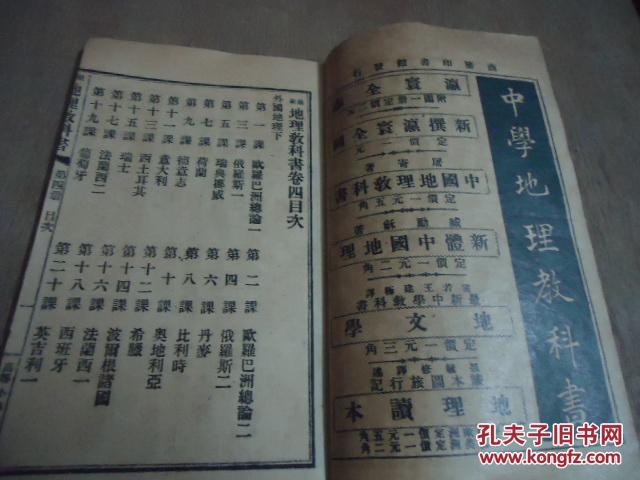 中學地理教科書
商務印書館發行
瀛寰全
附圖一册定價三元
新撰瀛寰全圖
定價二元
屠寄著
中國地理教科書
定價一元五角
臧勵龢著
新體中國地理
定價一元二角
最新中學教科書
地文學
定價一元三角
旅行記
地理讀本
最新地理教科書卷四目次
外國地理下
第一課 歐羅巴洲總論一
第二課 歐羅巴洲總論二
第三課 俄羅斯一
第四課 俄羅斯二
第五課 瑞典挪威
第六課 丹麥
第七課 荷蘭
第八課 比利時
第九課 德意志
第十課 奧地利亞
第十一課 意大利
第十二課 希臘
第十三課 西土耳其
第十四課 波爾根諸國
第十五課 瑞士
第十六課 法蘭西一
第十七課 法蘭西二
第十八課 西班牙
第十九課 葡萄牙
第二十課 英吉利一
地理教科書 第四卷 目次
一
孔夫子旧书网
www.kongfz.com